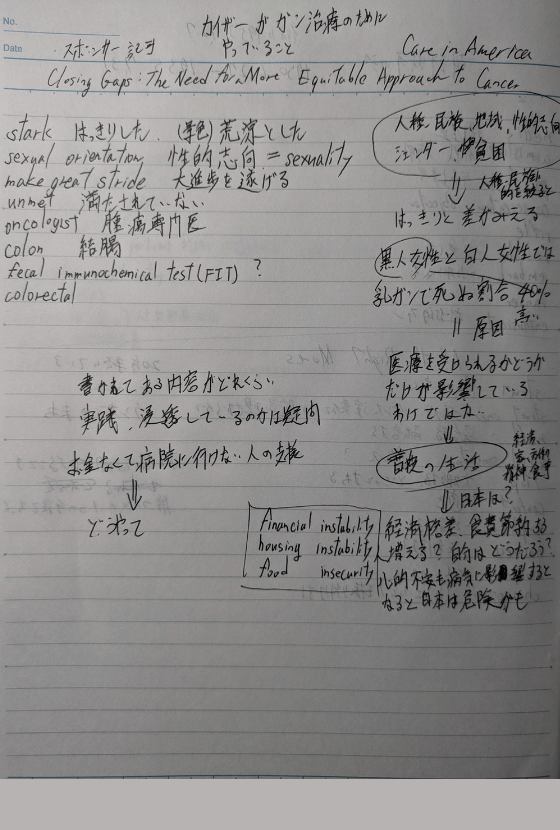 No.
Date
カイザーがガン治療のために
やっていること
スポンサー記事
Care in America
Closing Gaps: The Need for a More Equitable Approach to Cancer
stark はっきりした、(景色)荒涼とした
sexual orientation 性的志向 = sexuality
make great stride 大進歩を遂げる
unmet 満たされていない
oncologist 腫瘍専門医
colon 結腸
fecal immunochemical test (FIT) ?
colorectal
人種、民族、地域、性的志向
ジェンダー、貧困
⇓ 人種、民族
はっきりと差がみえる
黒人女性と白人女性では
乳ガンで死ぬ割合 40%
高い
|| 原因
医療を受けられるかどうか
だけが影響している
わけではない
⇓
普段の生活 経済、
精神、食事
⇓ 日本は?
経済格差、食費節約する
人増える? 的はどうだろう?
心的不安も病気に影響するとなると日本は危険かも
書かれてある内容がどれくらい
実践、浸透しているのかは疑問
お金なくて病院に行けない人の支援
⇓
どうやって
financial instability
housing instability
food insecurity